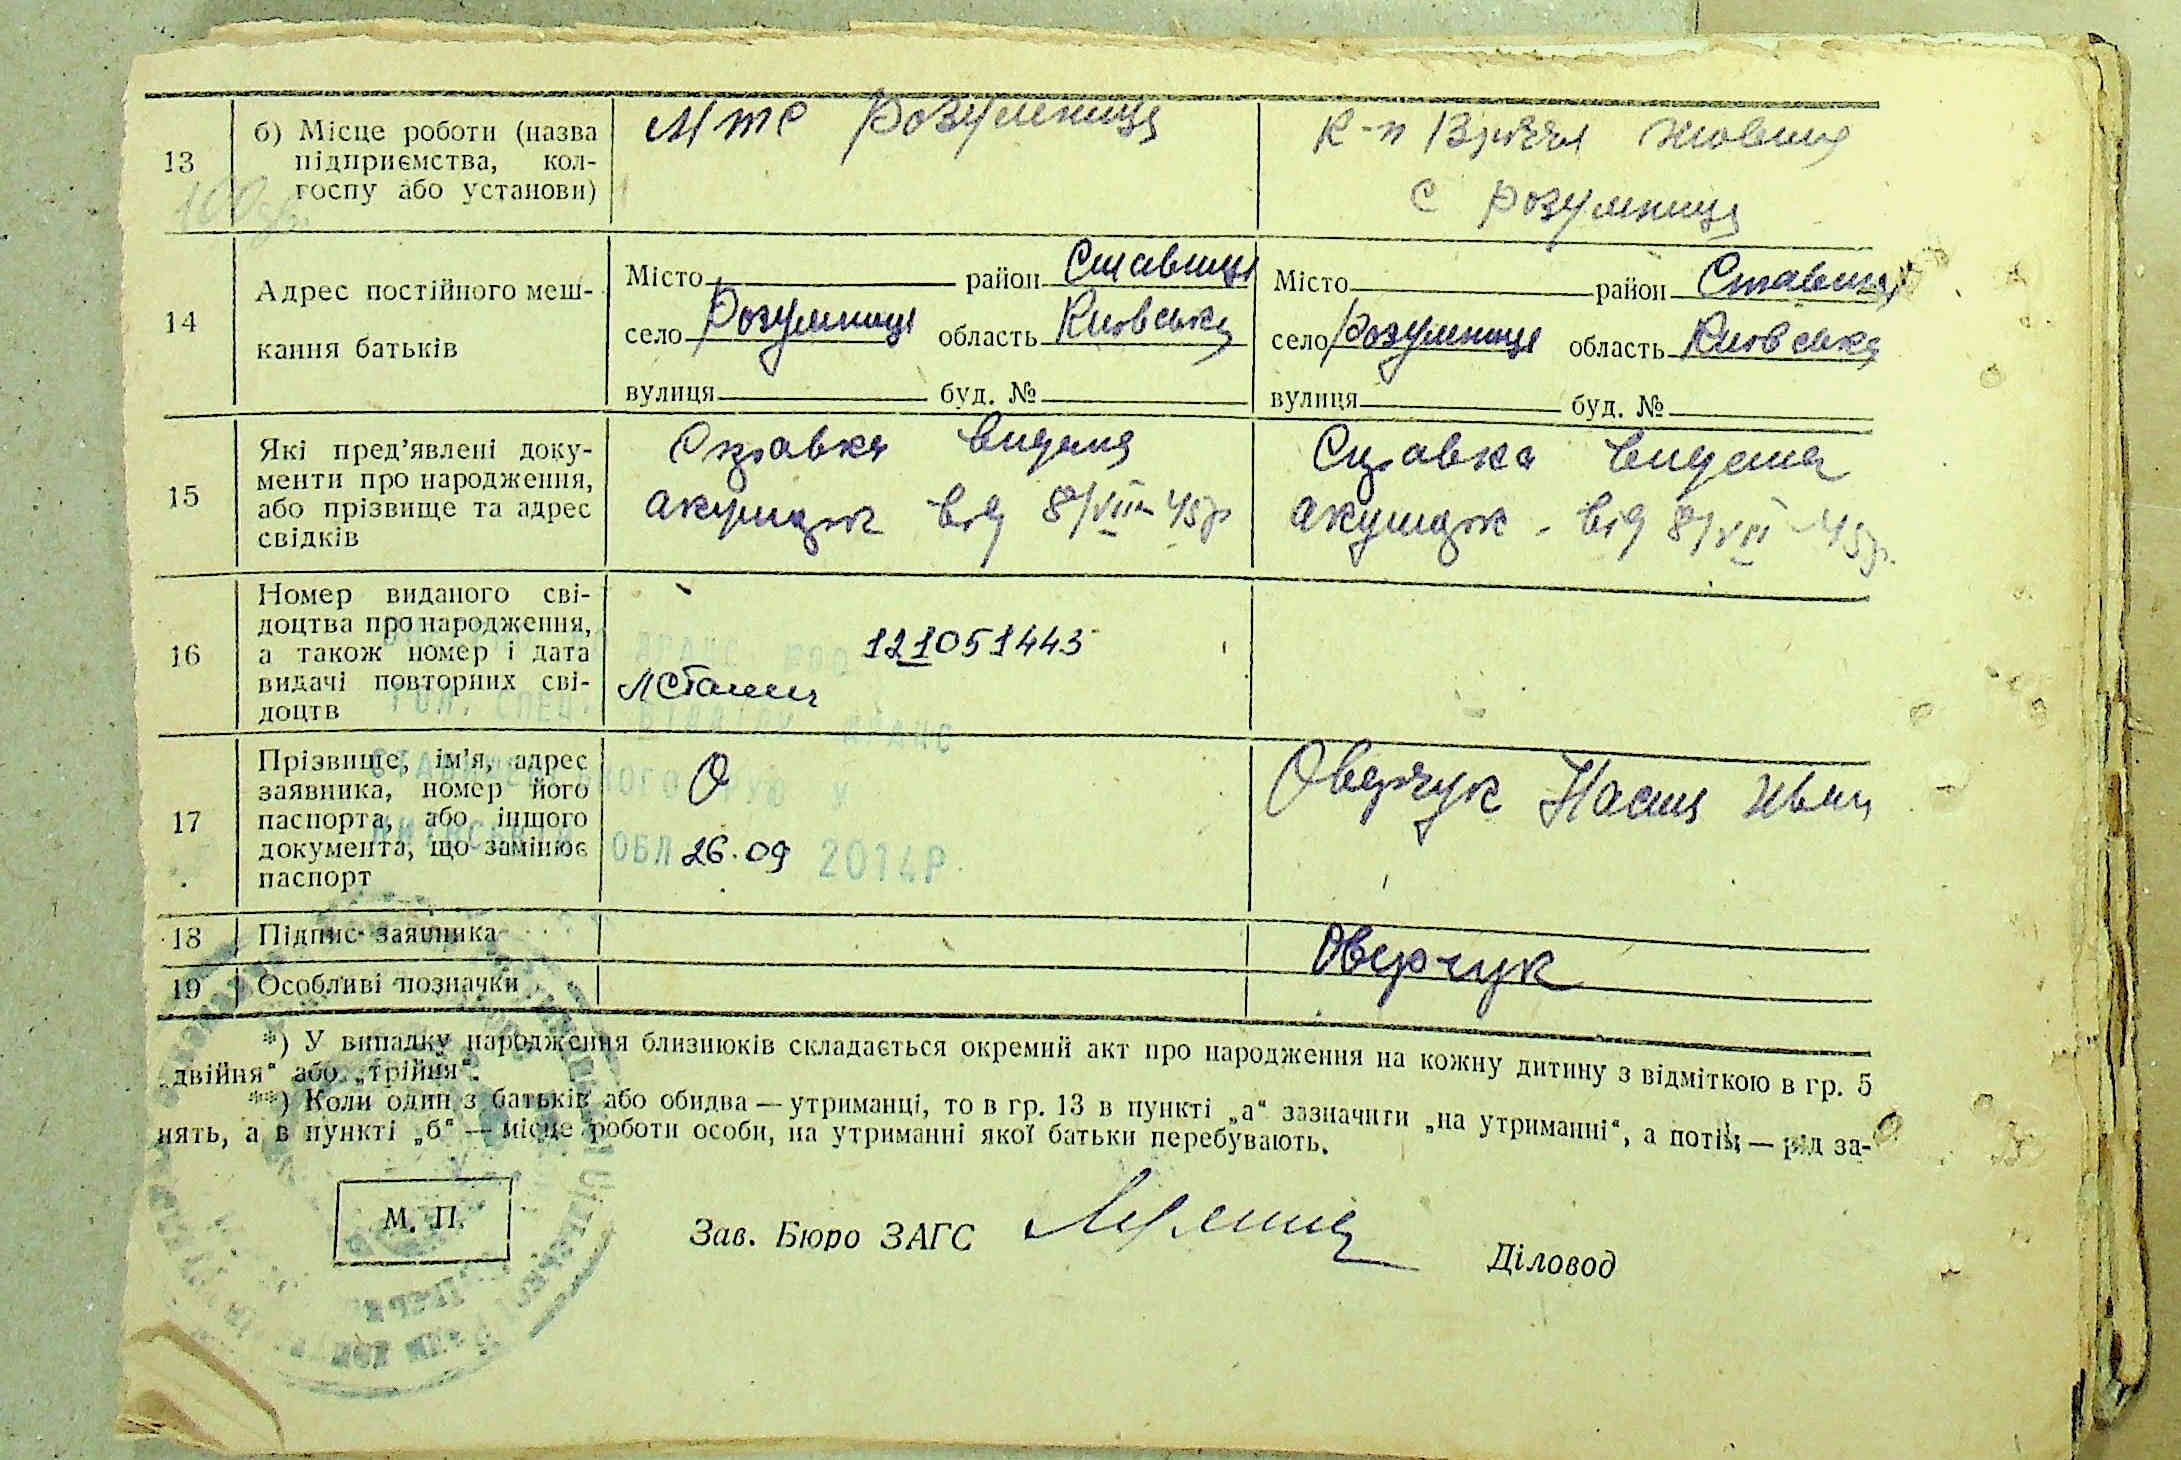 13
б) Місце роботи (назва
підприємства, кол-
госпу або установи)
МТС Розумниця
К-п жовтня
с Розумниця
14
Адрес постійного меш-
кання батьків
Місто район Ставище
село Розумниця область Київська
вулиця буд. №
Місто район Ставище
село Розумниця область Київська
вулиця буд. №
15
Які пред’явлені доку-
менти про народження,
або прізвище та адрес
свідків
Справка видана
акушерк від 8/VIII-45р
Справка видана
акушерк - від 8/VII-45р.
16
Номер виданого сві-
доцтва про народження,
а також номер і дата
видачі повторних сві-
доцтв
121051443
17
Прізвище, ім’я, адрес
заявника, номер його
паспорта, або іншого
документа, що замінює
паспорт
ГОЛ. СПЕЦ. ВІДДІЛУ ДРАЦС
ОБЛ 26.09 2014Р.
Оверчук
18
Підпис заявника
Оверчук
19
Особливі позначки
*) У випадку народження близнюків складається окремий акт про народження на кожну дитину з відміткою в гр. 5
„двійня“ або „трійня“.
**) Коли один з батьків або обидва — утриманці, то в гр. 13 в пункті „а“ зазначити „на утриманні“, а потім — рід за-
нять, а в пункті „б“ — місце роботи особи, на утриманні якої батьки перебувають.
М. П.
Зав. Бюро ЗАГС
Діловод